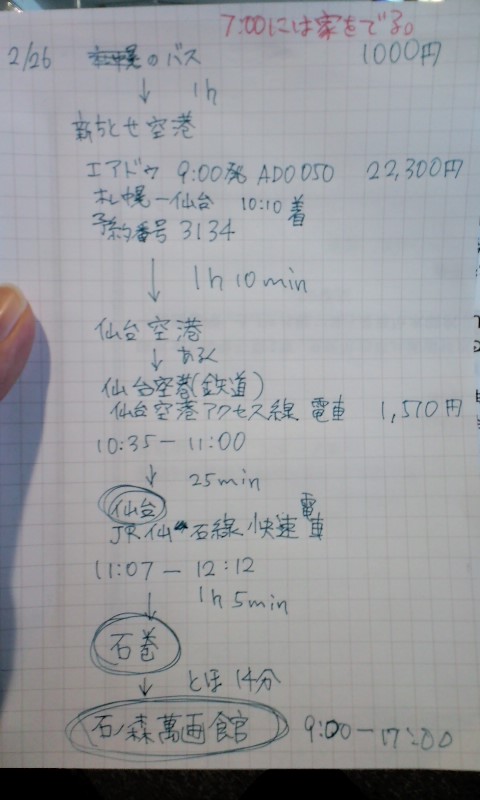 7:00には家をでる。
2/26 札幌のバス 1000円
↓ 1h
新ちとせ空港
エアドゥ 9:00発 ADO050 22,300円
札幌ー仙台 10:10着
予約番号 3134
↓ 1h 10min
仙台空港
↓ あるく
仙台空港(鉄道)
仙台空港アクセス線 電車 1,570円
10:35ー11:00
↓ 25min
仙台
JR仙石線 快速 電車
11:07ー12:12
↓ 1h 5min
石巻
↓ とほ 14分
石ノ森萬画館 9:00ー17:00